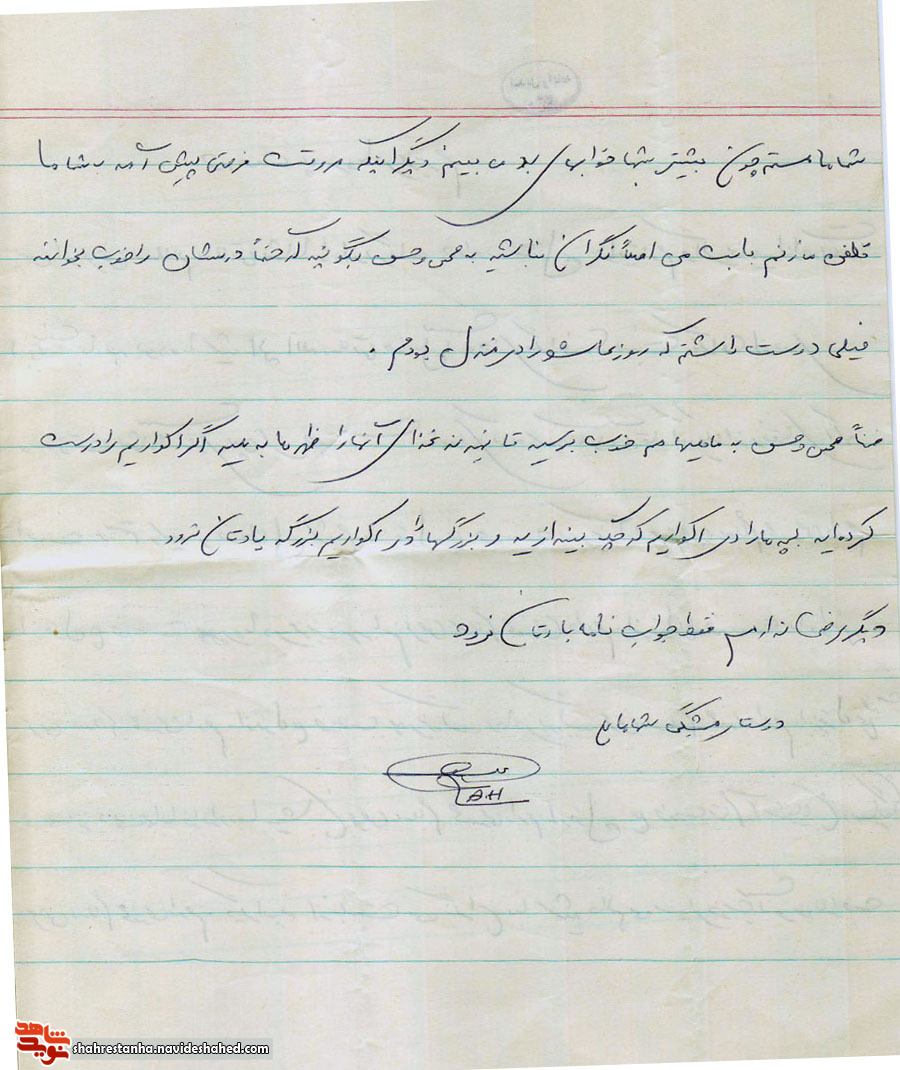 شماها هستم چون بیشتر شبها خوابهای بد می بینم دیگر اینکه هر وقت فرصتی پیش آمد بشماها
تلفن میزنم بابت من اصلاً نگران نباشید به محسن و حسن بگوئید که حتماً درسشان را خوب بخوانند
خیلی دوست داشتم که روز عاشورا در منزل بودم.
ضمناً محسن و حسن به ماهیها هم خوب برسید تا نیم غذای آنها را ظهرها بدهید اگر اکواریم را درست
کرده اید بچه ها را در اکواریم کوچک بیندازید و بزرگها را در اکواریم بزرگ یادتان نرود
دیگر عرضی ندارم فقط جواب نامه یادتان نرود
دوستدار همیشگی شماها
A.H
نوید شاهد
shahrestanha.navideshahed.com